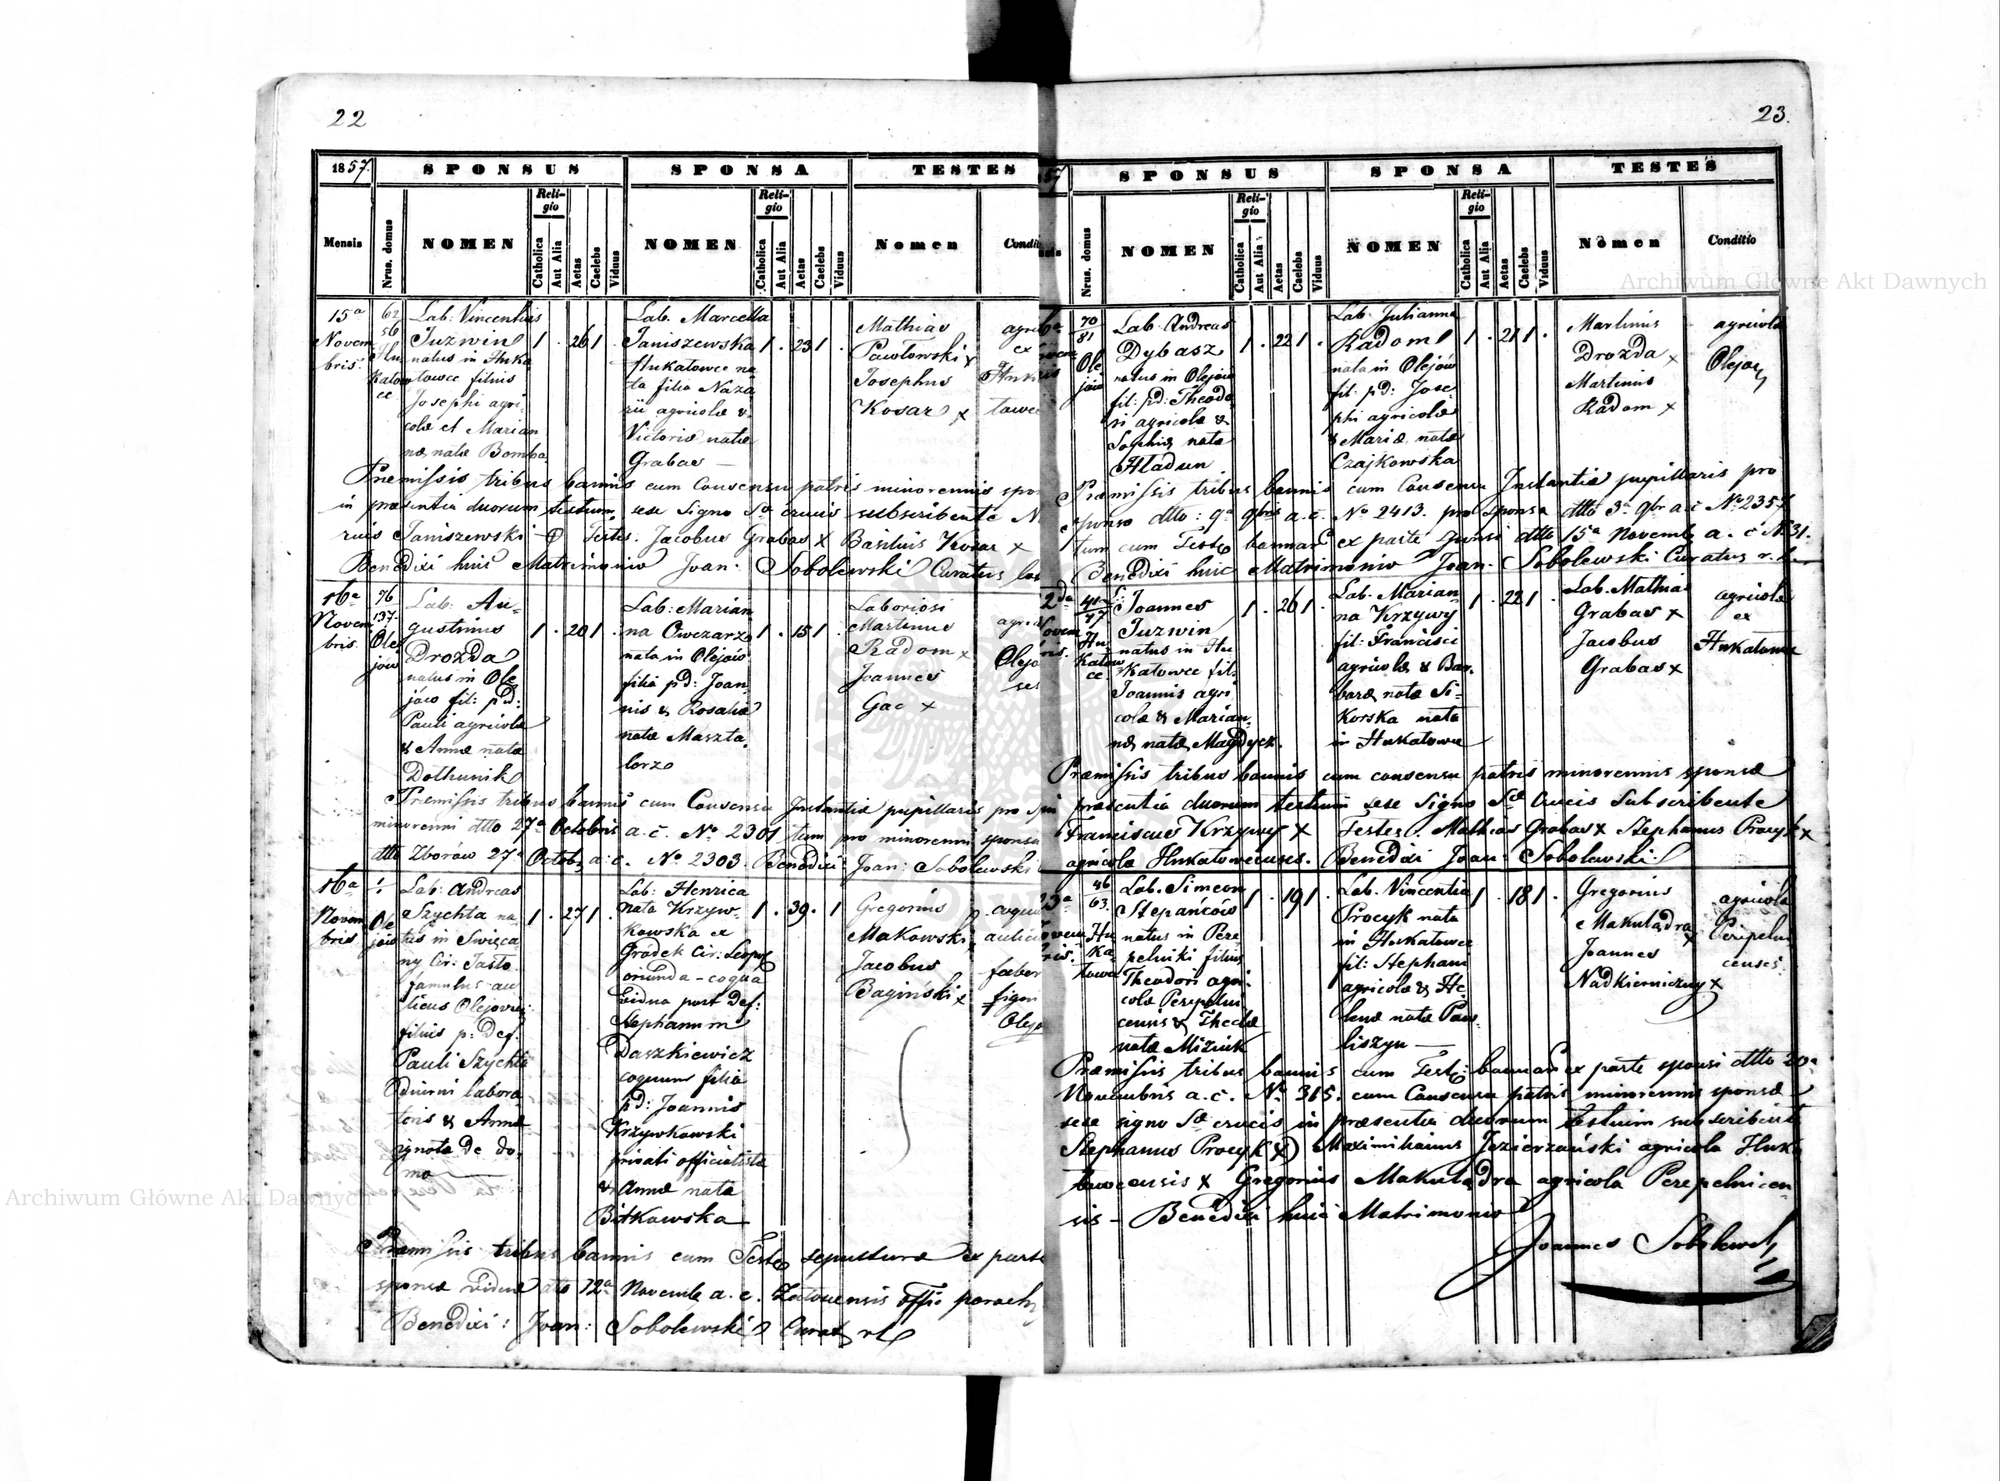 22
1857.
SPONSUS
SPONSA
TESTES
Mensis
Nrus. domus
NOMEN
Religio
Catholica
Aut Alia
Aetas
Caelebs
Viduus
NOMEN
Religio
Catholica
Aut Alia
Aetas
Caelebs
Viduus
Nomen
15a
Novem
bris
62
56
Hu
katow
ce
Lab: Vincentius
Juzwin
natus in Huka
towce filius
Josephi agri-
colæ et Marian
næ natæ Bomba
1 . 26 1 .
Lab. Marcella
Janiszewska
Hukatowce na
ta filia Naza
rii agricolæ &
Victoriæ natæ
Grabas —
1 . 23 1
Mathias
Pawłowski x
Josephus
Kosar x
ex
Præmissis tribus bannis cum Consensu patris minorennis
in præsentia duorum testium, sese Signo Sæ crucis subscribente
Janiszewski + Testes. Jacobus Grabas x Basilius Kosar x
Benedixi huic Matrimonio Joan. Sobolewski Curatus
16a
Novem
bris
76
137.
Ole
jów
Lab: Au-
gustinus
Drozda
natus in Ole
jów fil: pd:
Pauli agricolæ
& Annæ natæ
Dothunik
1 . 20 1 .
Lab: Marian
na Owczarz
nata in Olejów
filia pd: Joan
nis & Rosaliæ
natæ Maszta
lorz
1 . 15 1 .
Laboriosi
Martinus
Radom x
Joannes
Gac x
Præmissis tribus bannis cum Consensu Instantiæ pupillaris pro
minorenni dtto 27a Octobris a. c. No 2301 tum pro minorenni sponsa
dtto Zborów 27a Octob. a. c. No 2303. Benedixi Joan: Sobolewski
16a
Novem
bris
Ole
jów
Lab: Andreas
Szychta na
tus in Swięca
ny Cir: Jasło
famulus au
licus Olejovi
filius p: def.
Pauli Szychta
diurni labora
toris & Annæ
ignotæ de do
mo
1 . 27 1 .
Lab: Henrica
nata Krzyw-
kowska ex
Gradek Cir: Leopol
oriunda - coqua
vidua post def:
Stephanum
Daszkiewicz
coquum filia
pd: Joannis
Krzywkowski
privati officialista
& Annæ natæ
Bitkowska
1 . 39 . 1
Gregorius
Makowski
Jacobus
Bagiński x
faber
Præmissis tribus bannis cum Testo sepulturæ ex parte
sponsæ viduæ dtto 12a Novemb. a. c. officio
Benedixi: Joan: Sobolewski Curat
23.
SPONSUS
SPONSA
TESTES
Nrus. domus
NOMEN
Religio
Catholica
Aut Alia
Aetas
Caelebs
Viduus
NOMEN
Religio
Catholica
Aut Alia
Aetas
Caelebs
Viduus
Nomen
Conditio
70
81
Ole
jów
Lab. Andreas
Dybasz
natus in Olejów
fil: pd: Theodo
si agricolæ &
Sophiæ natæ
Hladun
1 . 22 1 .
Lab. Julianna
Radom
nata in Olejów
fil: pd: Jose
phi agricolæ
& Mariæ natæ
Czajkowska
1 . 21 1 .
Martinus
Drozda x
Martinus
Radom x
agricolæ
Olejov
Præmissis tribus bannis cum Consensu Instantiæ pupillaris pro
sponso dtto: 9a 9bris a. c. No 2413. pro Sponsa dtto 3a 9br a c No 2357
tum cum Testo bannar ex parte sponsi dtto 15a Novemb a. c No 31.
Benedixi huic Matrimonio Joan. Sobolewski Curatus
41
47
Hu
katow
ce
L: Joannes
Juzwin
natus in Hu
katowce fil:
Joannis agri
colæ & Marian
næ natæ Magdycz.
1 . 26 1 .
Lab. Marian
na Krzywy
fil: Francisci
agricolæ & Bar
baræ natæ Si-
korska nata
in Hukatowce
1 . 22 1 .
Lab. Mathias
Grabas x
Jacobus
Grabas x
agricolæ
ex
Hukatowce
Præmissis tribus bannis cum consensu patris minorennis sponsæ
præsentia duorum testium sese Signo Sæ Crucis Subscribente
Franciscus Krzywy x Testes. Mathias Grabas x Stephanus Procyk x
agricolæ Hukatowcenses. Benedixi Joan. Sobolewski
46
63.
Hu
ka
towce
Lab. Simeon
Stepańców
natus in Pere
pelniki filius
Theodori agri
colæ Perepelni
censis & Theclæ
natæ Miziuk
1 . 19 1 .
Lab. Vincentia
Procyk nata
in Hukatowce
fil: Stephani
agricolæ & He
lenæ natæ Paw
liszyn —
1 . 18 1 .
Gregorius
Makuładra x
Joannes
Nadkierniczny x
agricolæ
Perepelni
censes.
Præmissis tribus bannis cum Testo: bannar ex parte sponsi dtto 20a
Novembris a. c. No 315. cum Consensu patris minorennis sponsæ
sese signo Sæ crucis in præsentia duorum testium subscribent
Stephanus Procyk x) Maximilianus Jezierzański agricola Huka
towcensis x Gregorius Makuładra agricola Perepelnicen
sis - Benedixi huic Matrimonio
Joannes Sobolewski
Archiwum Główne Akt Dawnych
Archiwum Główne Akt Dawnych